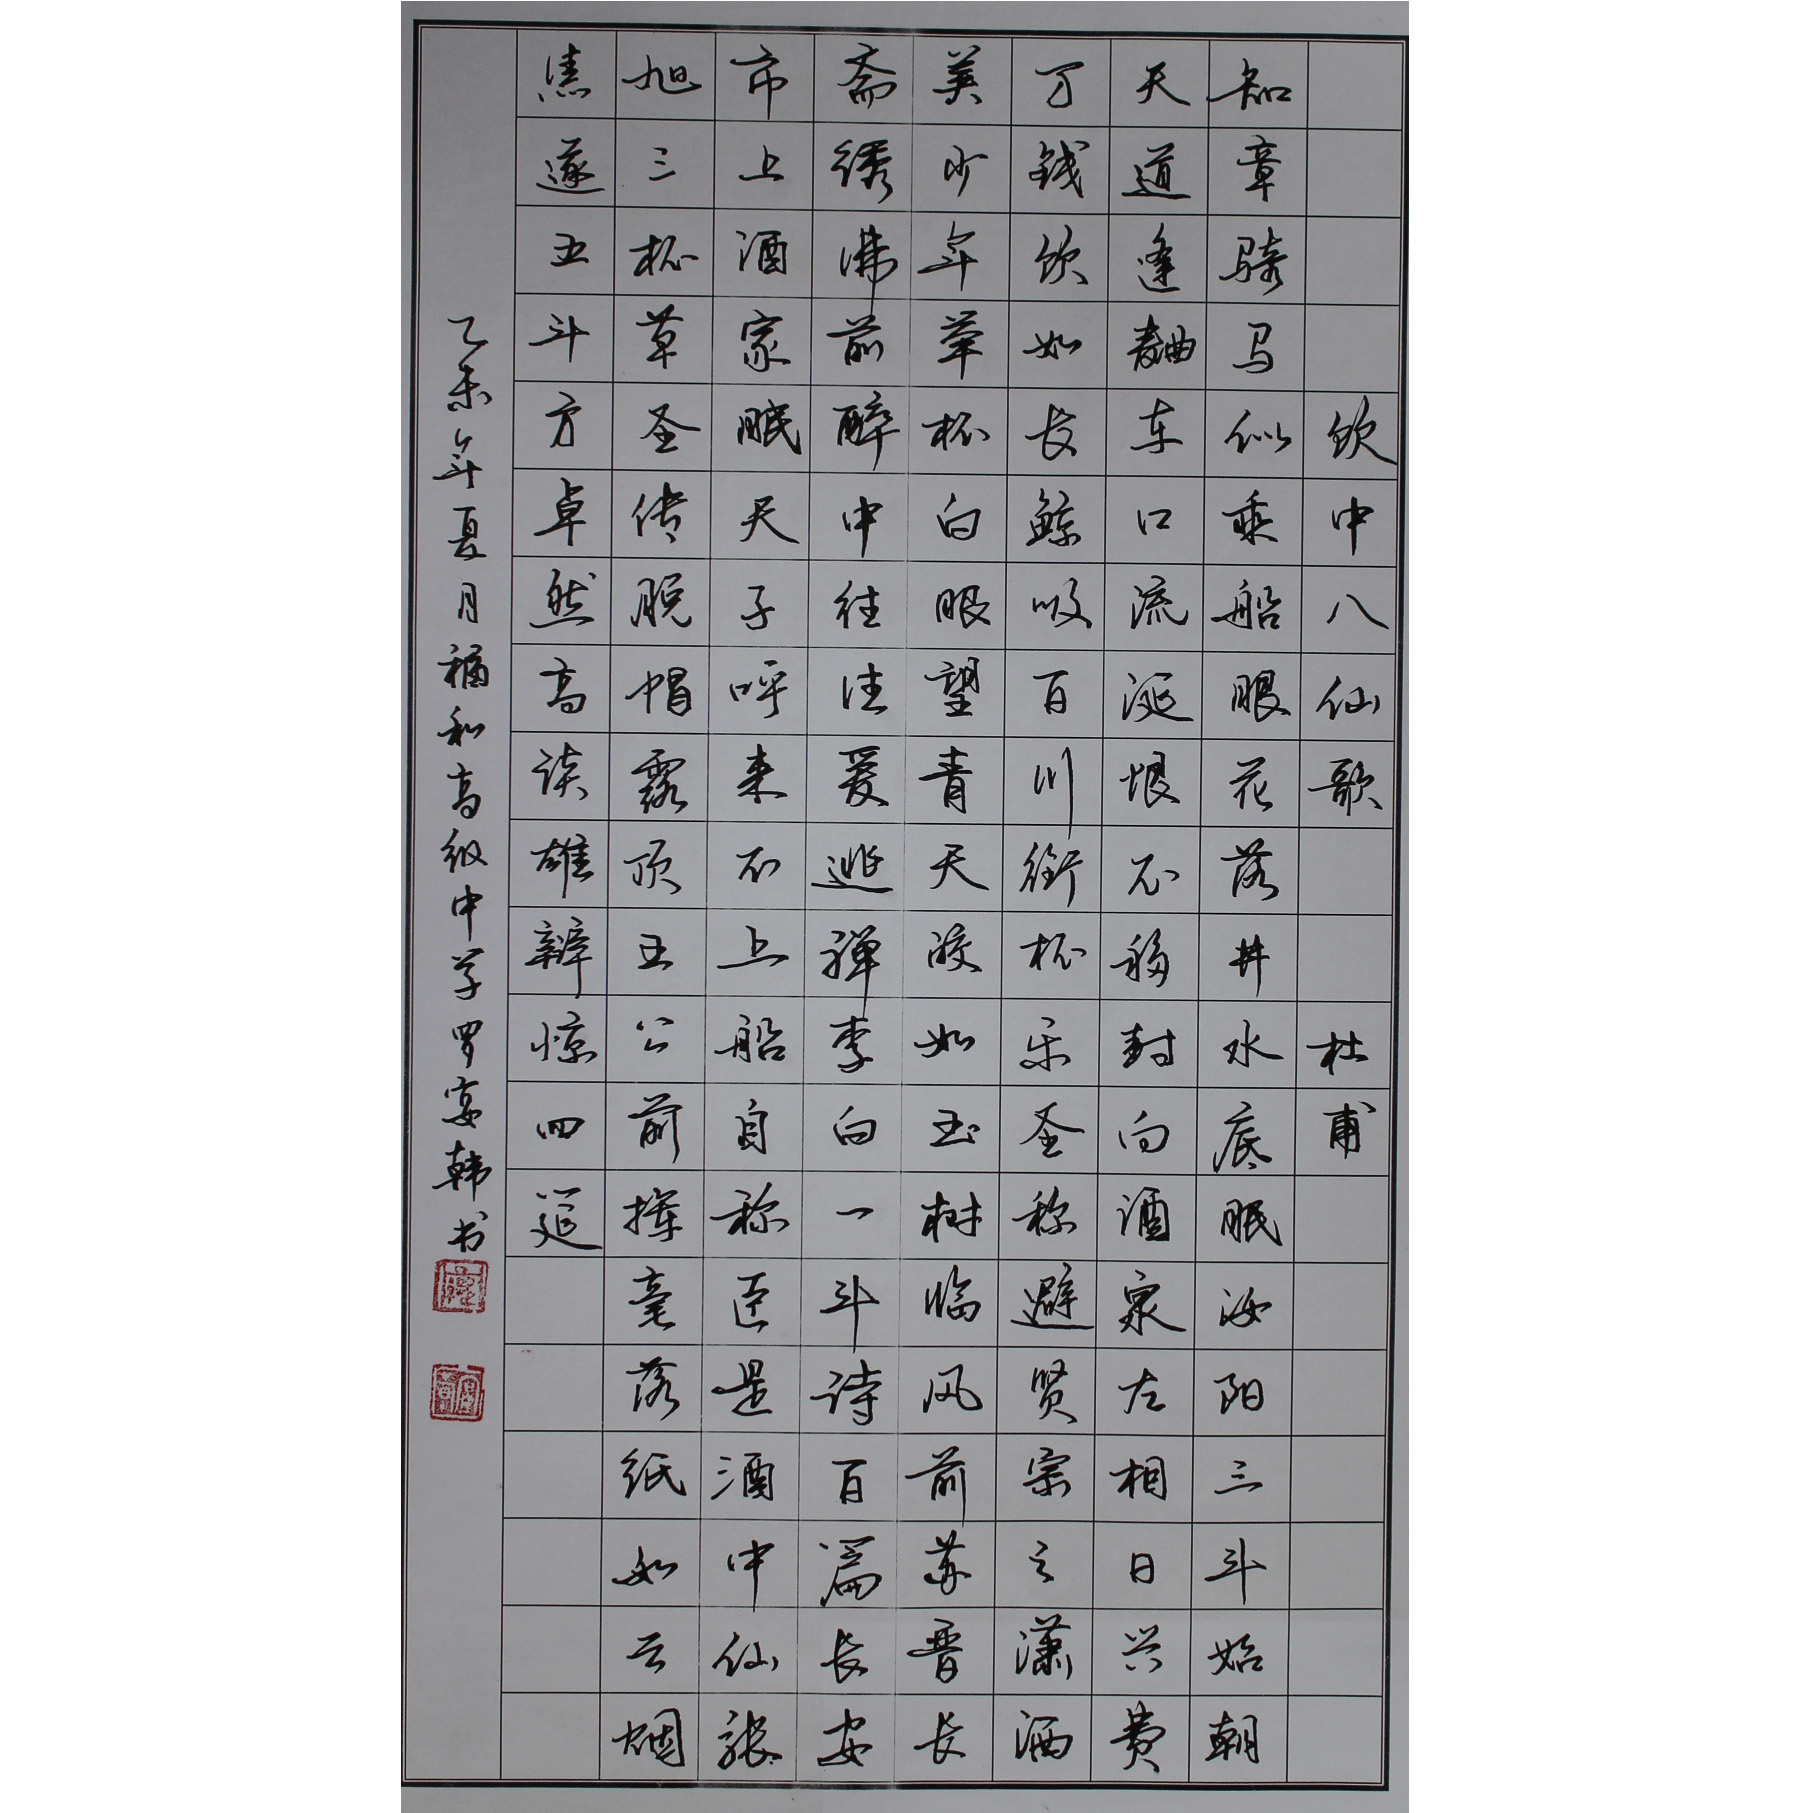 饮中八仙歌 杜甫
知章骑马似乘船眼花落井水底眠汝阳三斗始朝
天道逢麯车口流涎恨不移封向酒泉左相日兴费
万钱饮如长鲸吸百川衔杯乐圣称避贤宗之潇洒
美少年举杯白眼望青天皎如玉树临风前苏晋长
斋绣佛前醉中往往爱逃禅李白一斗诗百篇长安
市上酒家眠天子呼来不上船自称臣是酒中仙张
旭三杯草圣传脱帽露顶王公前挥毫落纸如云烟
焦遂五斗方卓然高谈雄辩惊四筵
乙未年夏月福和高级中学罗宴韩书